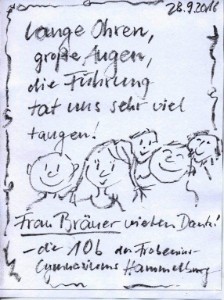 28.9.2016
lange Ohren,
große Augen,
die Führung
tat uns sehr viel
taugen!
Frau Bräuer vielen Dank!
- die 10b des Frobenius-
Gymnasiums Hammelburg